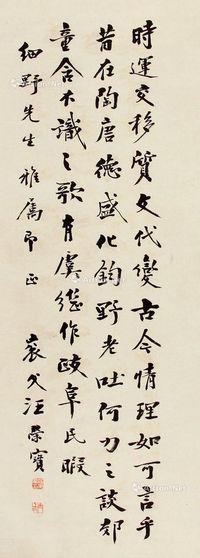 時運交移質文代變古今情理如可言乎
昔在陶唐德盛化鈞野老吐何力之談郊
童含不識之歌有虞繼作政阜民暇
細野先生雅屬即正
袞父汪榮寶